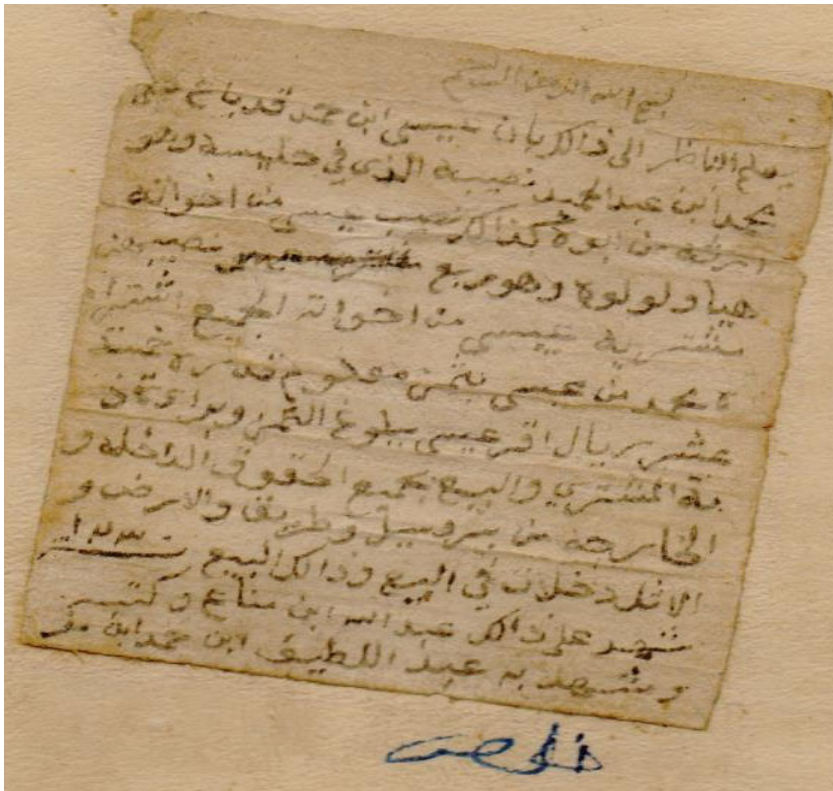 بسم الله الرحمن الرحيم
يعلم الناظر الى ذالك بان عيسى ابن حمد قد باع على
محمد ابن عبد المحيد نصيبه الذي في حليسه وهو
من ابوه كذالك نصيب عيسى من اخواته
هيا ولولوه وهو ربع نصيبهن
مشتريه عيسى من اخواته الجميع اشترا
ه محمد من عيسى بثمن معلوم قدره خمسة
عشر ريال اقر عيسى ببلوغ الثمن وبراءة ذ
مة المشتري والبيع بجميع الحقوق الداخله و
الخارجه من بير وسيل وطريق والارض و
الاثل دخلات في البيع وذالك البيع
شهد على ذالك عبد الله ابن مناع وكتبه
وشهد به عبد اللطيف ابن حمد ابن